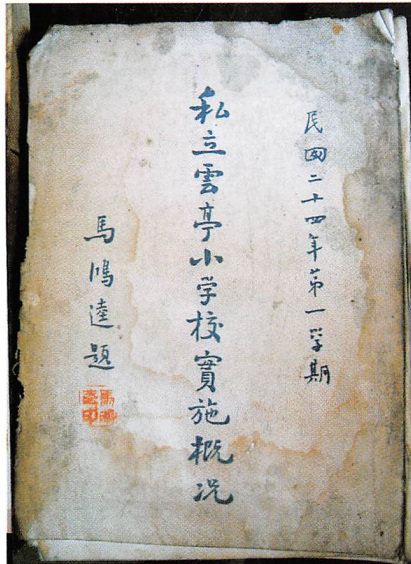 民国二十四年第一学期
私立雲亭小学校實施概况
馬鴻逵題
馬鴻逵印